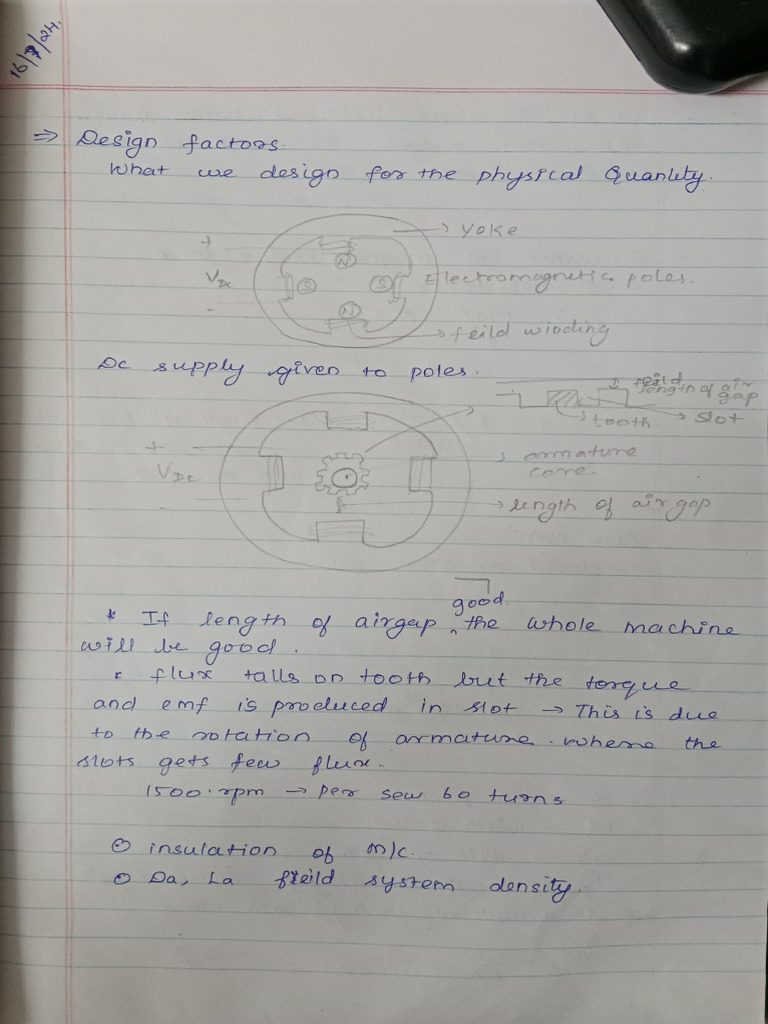 16/7/24.
⇒ Design factors.
What we design for the physical Quantity.
+
VDc
-
→ Yoke
N
S
S
N
Electromagnetic poles.
→ feild winding
Dc supply given to poles.
length of air gap
→ tooth
→ slot
+
VDc
-
→ armature
core
→ length of air gap
good.
* If length of airgap ^ the whole machine
will be good.
* flux falls on tooth but the torque
and emf is produced in slot → This is due
to the rotation of armature. where the
slots gets few flux.
1500.rpm → per sew 60 turns
⊙ insulation of m/c.
⊙ Da, La feild system density.